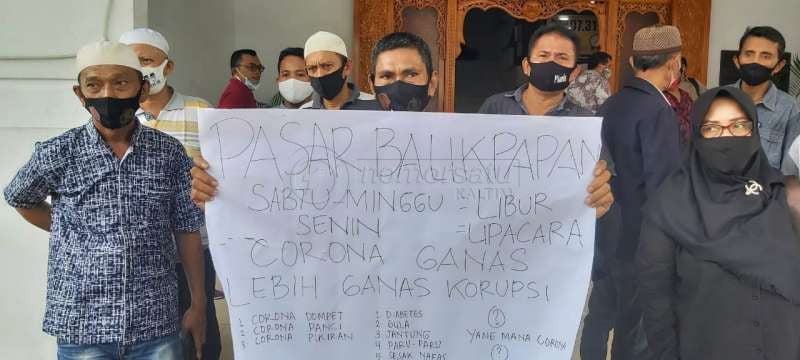 PASAR BALIKPAPAN
nomorsatu
KALTIM
SABTU-MINGGU = LIBUR
SENIN = UPACARA
CORONA GANAS
LEBIH GANAS KORUPSI
1 CORONA DOMPET
2 CORONA PANCI
3 CORONA PIKIRAN
1 DIABETES
2 GULA
3 JANTUNG
4 PARU-PARU
5 SESAK NAFAS
?
YANG MANA CORONA
?